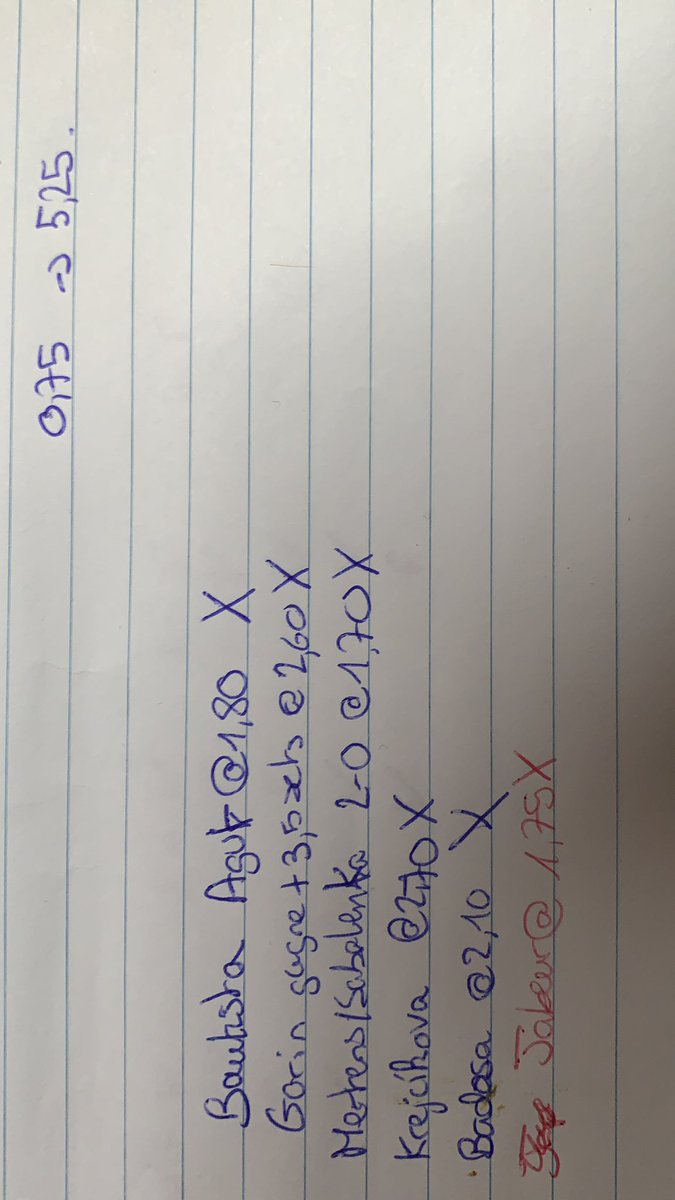 0,75 → 5,25.
Bautista Agut @1,80 X
Garin gagne +3,5 sets @2,60 X
Mertens/Sabalenka 2-0 @1,70 X
Krejcikova @2,70 X
Badosa @2,10 X
Jabeur @ 1,75 X